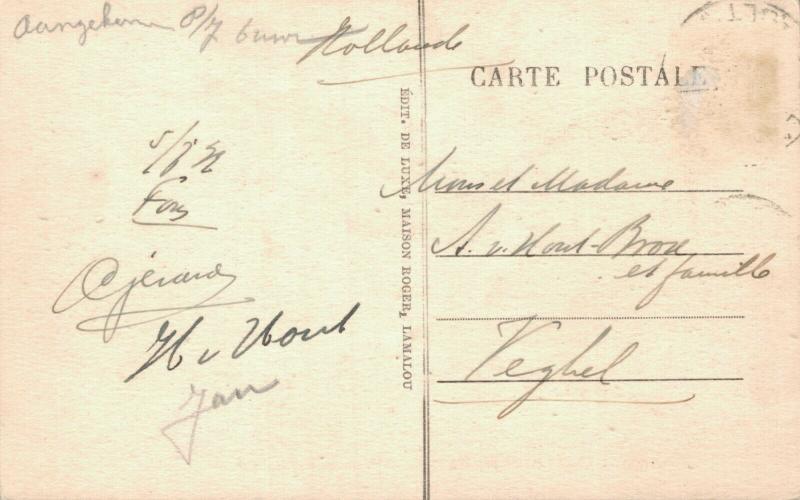 Aangekomen 8/7
Hollande
CARTE POSTALE
ÉDIT. DE LUXE, MAISON ROGER, LAMALOU
Fons
Gérard
H v Hout
Jan
Mons et Madame
A. v. Hout-Brox
et famille
Veghel